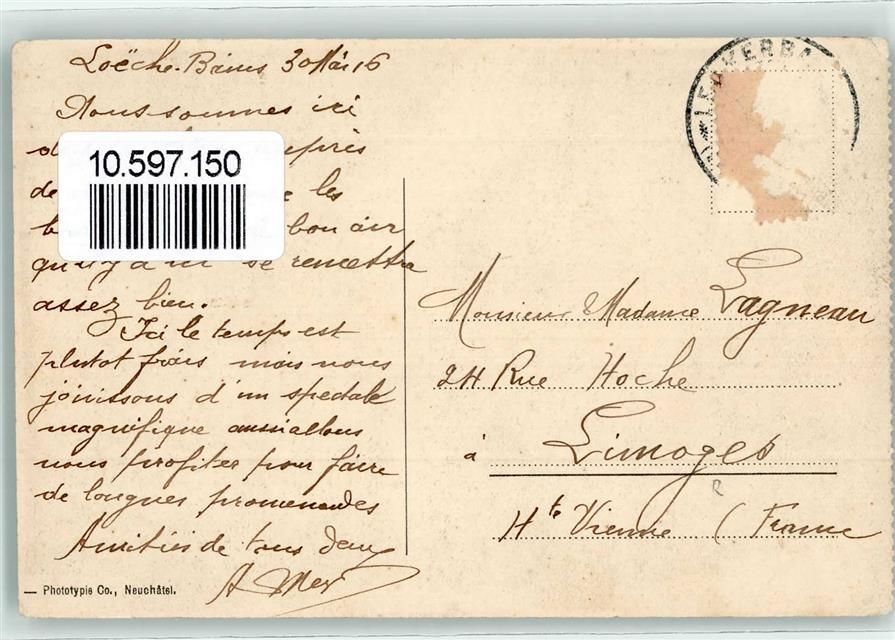 Loëche-Bains 30 Mai 16
Nous sommes ici
près
de les
bon air
qu'il y a ici se remettre
assez bien.
Ici le temps est
plutot frais mais nous
jouissons d'un spectacle
magnifique aussi allons
nous profiter pour faire
de longues promenades
Amitiés de tous deux
10.597.150
LEUKERBA
Monsieur Madame Lagneau
24 Rue Hoche
à Limoges
Hte Vienne (France
— Phototypie Co., Neuchâtel.